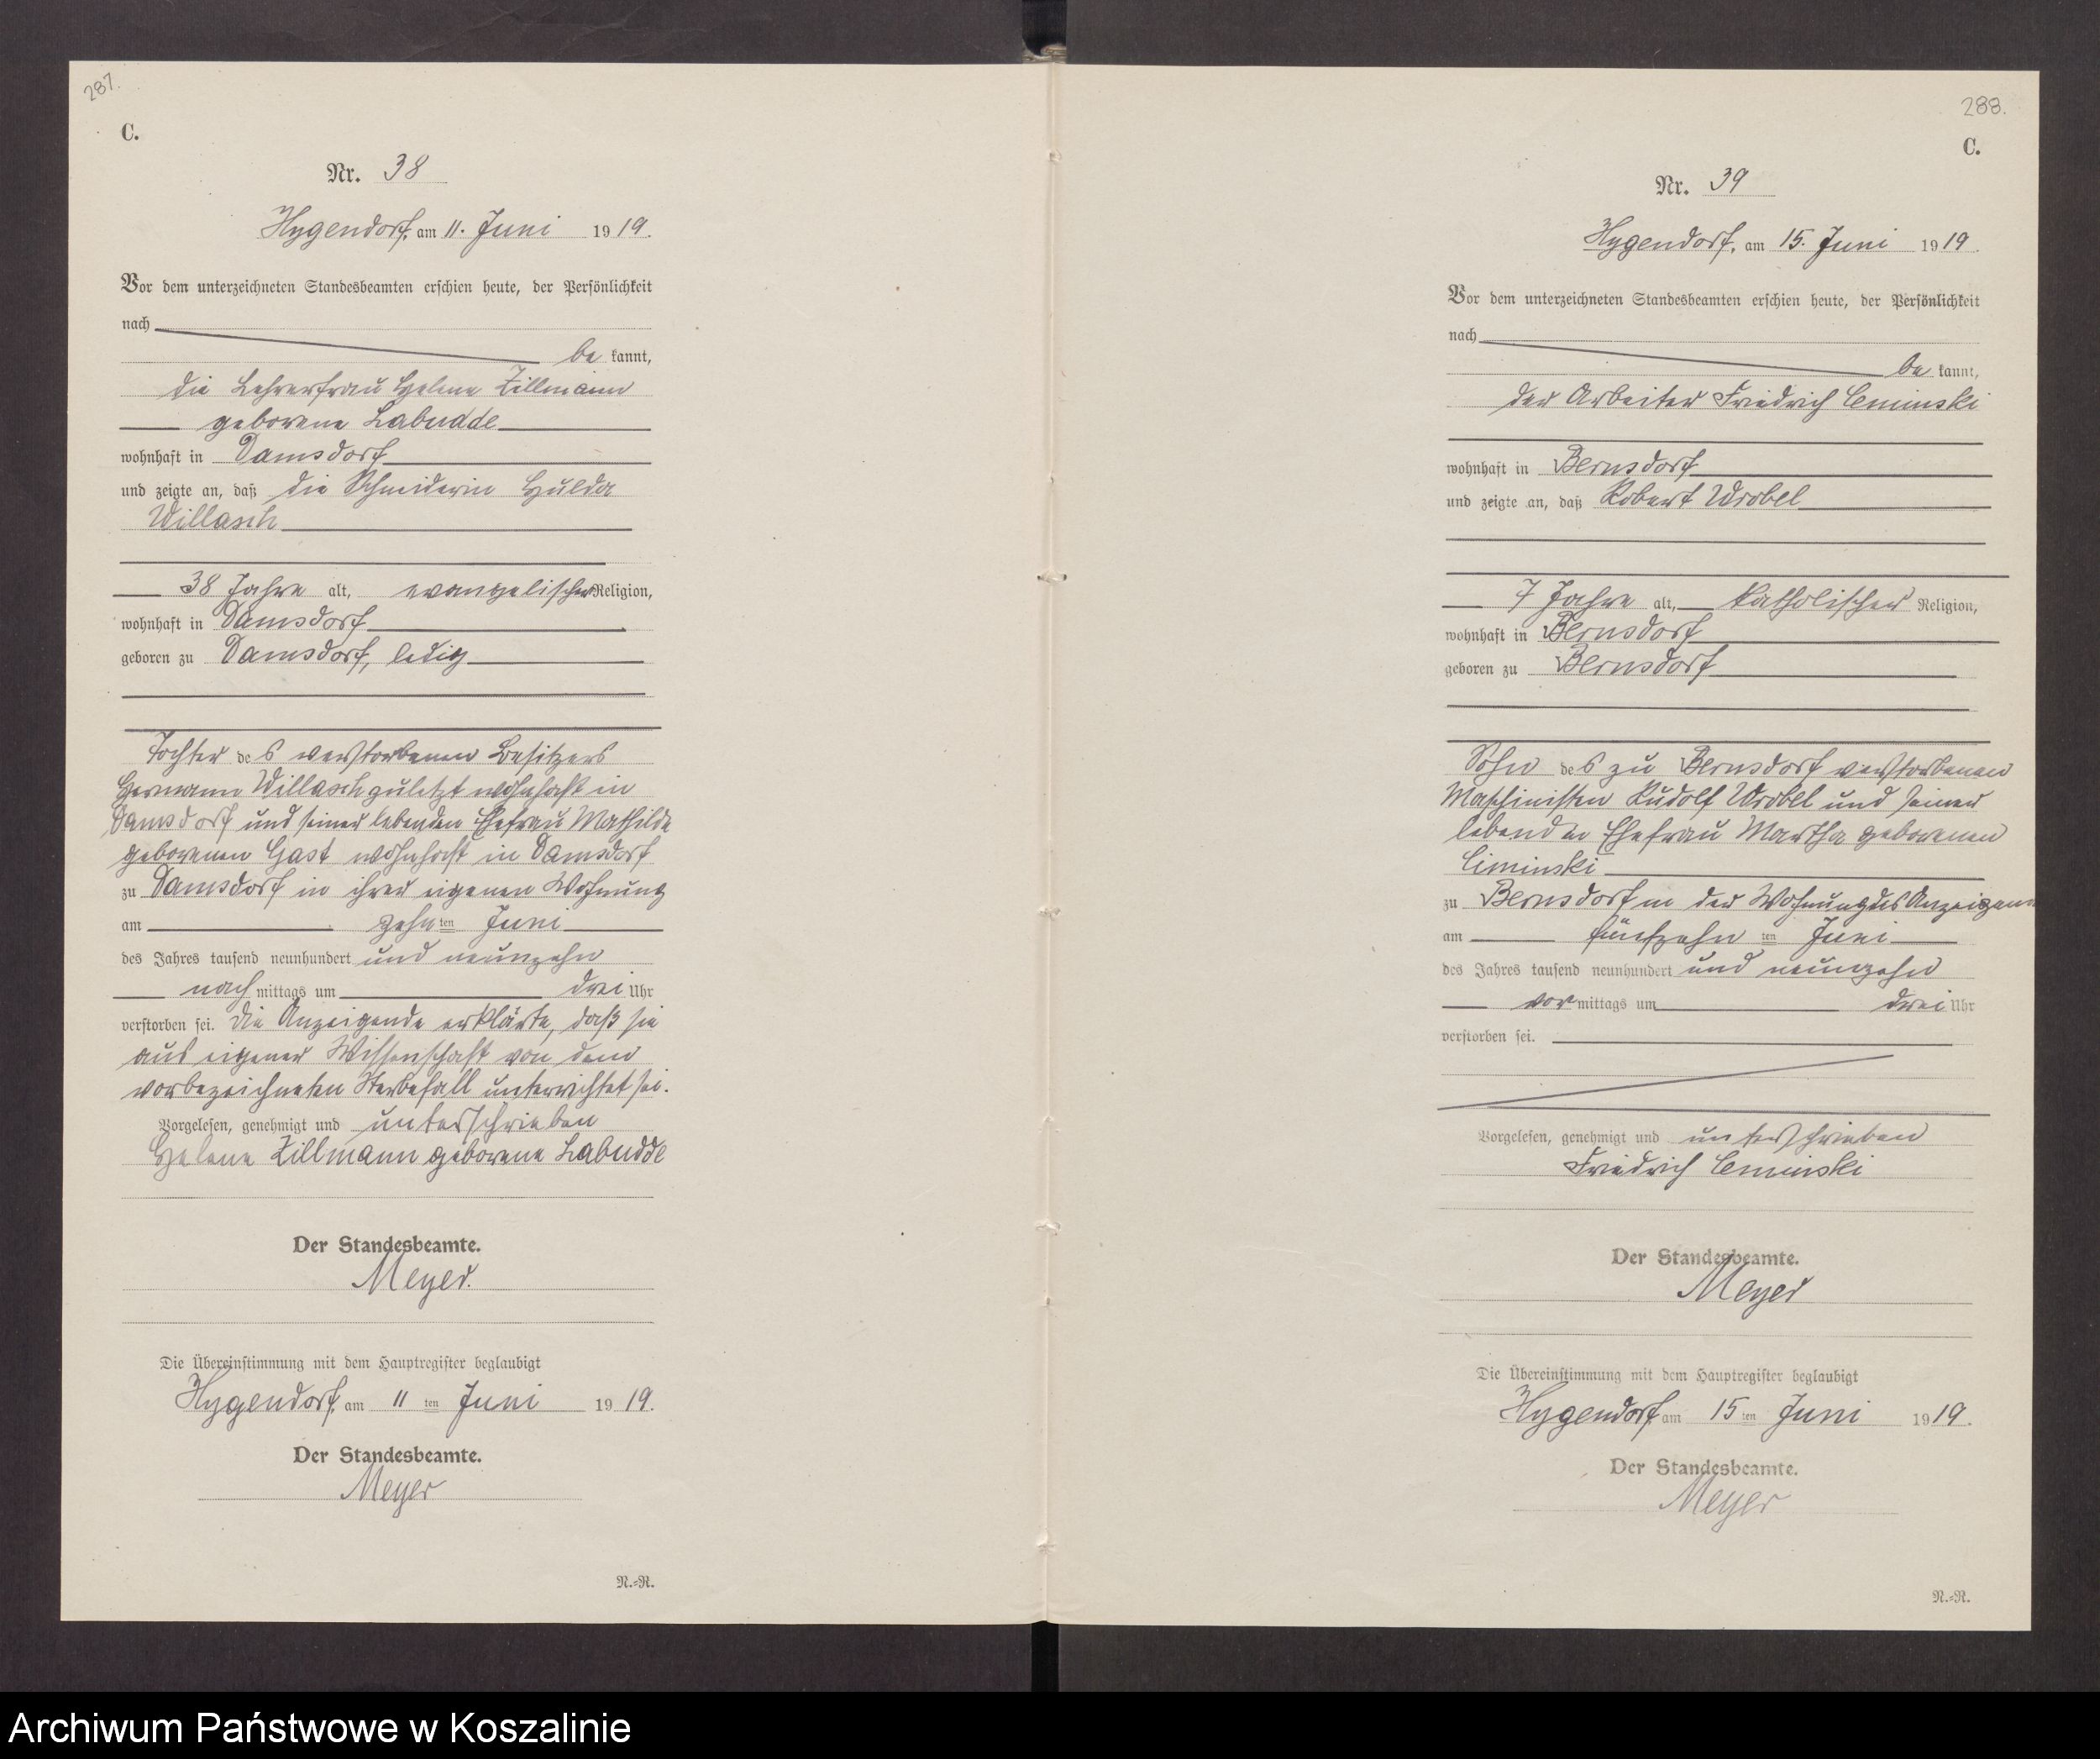 287.
C.
Nr. 38
Hygendorf, am 11. Juni 1919.
Vor dem unterzeichneten Standesbeamten erschien heute, der Persönlichkeit
nach
be kannt,
die Lehrerfrau Helene Zillmann
geborene Labudde
wohnhaft in Damsdorf
und zeigte an, daß die Schneiderin Hulda
Willasch
38 Jahre alt, evangelischer Religion,
wohnhaft in Damsdorf
geboren zu Damsdorf, ledig
Tochter des verstorbenen Besitzers
Hermann Willasch zuletzt wohnhaft in
Damsdorf und seiner lebenden Ehefrau Mathilde
geborenen Gast wohnhaft in Damsdorf
zu Damsdorf in ihrer eigenen Wohnung
am zehn ten Juni
des Jahres tausend neunhundert und neunzehn
nach mittags um drei Uhr
verstorben sei. Die Anzeigende erklärte, daß sie
aus eigener Wissenschaft von dem
vorbezeichneten Sterbefall unterrichtet sei.
Vorgelesen, genehmigt und unterschrieben
Helene Zillmann geborene Labudde
Der Standesbeamte.
Meyer.
Die Übereinstimmung mit dem Hauptregister beglaubigt
Hygendorf, am 11 ten Juni 1919.
Der Standesbeamte.
Meyer
N.-R.
288.
C.
Nr. 39
Hygendorf, am 15. Juni 1919.
Vor dem unterzeichneten Standesbeamten erschien heute, der Persönlichkeit
nach
be kannt,
der Arbeiter Friedrich Ceminski
wohnhaft in Bernsdorf
und zeigte an, daß Robert Wrobel
7 Jahre alt, katholischer Religion,
wohnhaft in Bernsdorf
geboren zu Bernsdorf
Sohn des zu Bernsdorf verstorbenen
Maschinisten Rudolf Wrobel und seiner
lebenden Ehefrau Martha geborenen
Ciminski
zu Bernsdorf in der Wohnung des Anzeigenden
am fünfzehn ten Juni
des Jahres tausend neunhundert und neunzehn
vor mittags um drei Uhr
verstorben sei.
Vorgelesen, genehmigt und unterschrieben
Friedrich Ceminski
Der Standesbeamte.
Meyer
Die Übereinstimmung mit dem Hauptregister beglaubigt
Hygendorf, am 15 ten Juni 1919.
Der Standesbeamte.
Meyer
N.-R.
Archiwum Państwowe w Koszalinie